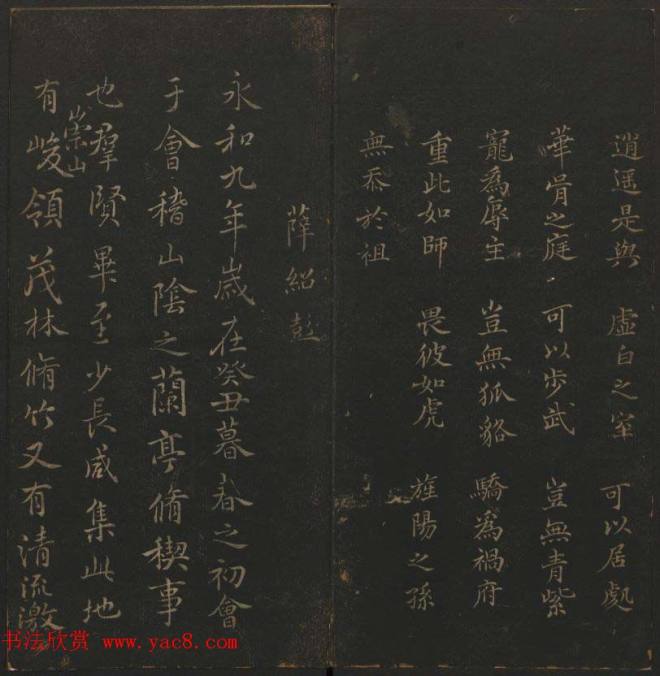 逍遥是與 虛白之室 可以居處
華骨之庭 可以步武 豈無青紫
寵為辱主 豈無狐貉 驕為禍府
重此如師 畏彼如虎 旌陽之孫
無忝於祖
薛紹彭
永和九年歲在癸丑暮春之初會
于會稽山陰之蘭亭脩稧事
也羣賢畢至少長咸集此地
有崇山峻領茂林脩竹又有清流激
书法欣赏 www.yac8.com